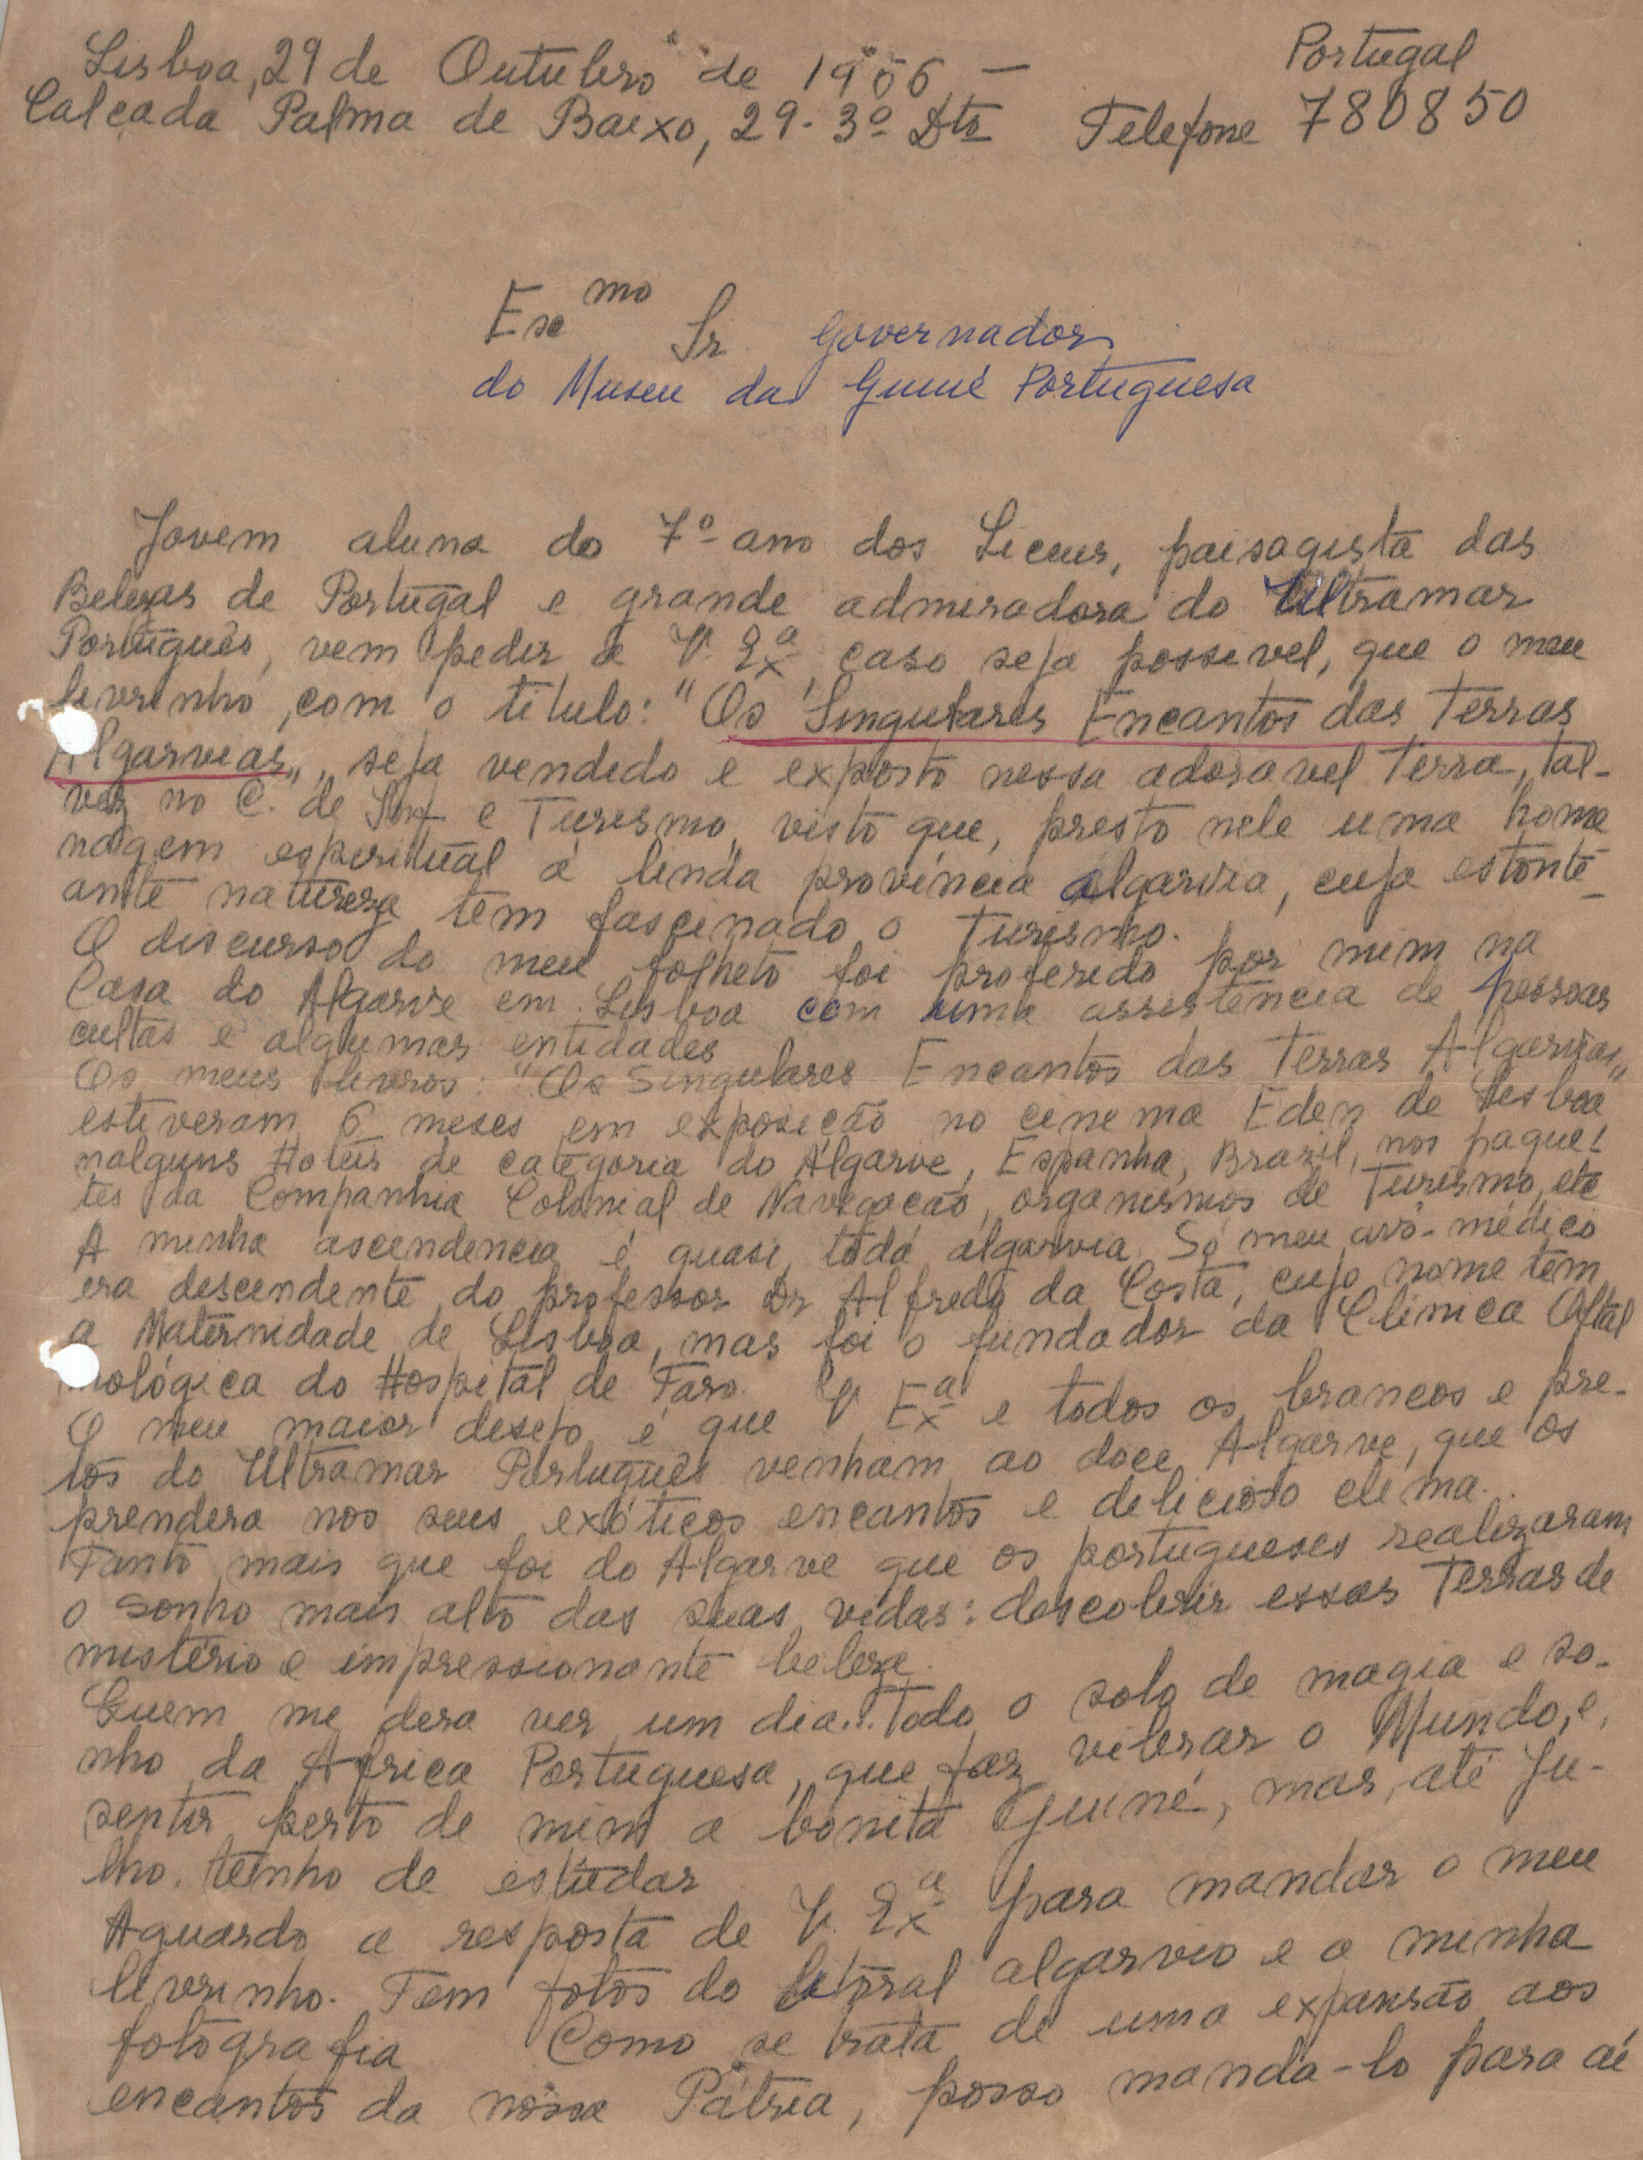 Lisboa, 29 de Outubro de 1966 — Portugal
Calçada Palma de Baixo, 29-3º Dtº Telefone 780850
Exmo Sr Governador
do Museu da Guiné Portuguesa
Jovem aluna do 7º ano dos Liceus, paisagista das
Belezas de Portugal e grande admiradora do Ultramar
Português, vem pedir a V. Exª caso seja possivel, que o meu
livrinho, com o titulo: "Os Singulares Encantos das Terras
Algarvias", seja vendido e exposto nessa adoravel Terra, tal-
vez no C. de Inf e Turismo, visto que, presto nele uma home
nagem espiritual á linda província algarvia, cuja estonte-
ante natureza tem fascinado o Turismo.
O discurso do meu folheto foi proferido por mim na
Casa do Algarve em Lisboa com uma assistência de pessoas
cultas e algumas entidades
Os meus livros: "Os Singulares Encantos das Terras Algarvias"
estiveram 6 meses em exposição no cinema Eden de Lisboa
nalguns Hoteis de categoria do Algarve, Espanha, Brazil, nos paque-
tes da Companhia Colonial de Navegação, organismos de Turismo, etc
A minha ascendencia é quasi toda algarvia. Só meu avô-médico
era descendente do professor Dr Alfredo da Costa, cujo nome tem
a Maternidade de Lisboa, mas foi o fundador da Clínica Oftal
mológica do Hospital de Faro.
O meu maior desejo é que V Exª e todos os brancos e pre-
tos do Ultramar Português venham ao doce Algarve, que os
prendera nos seus exóticos encantos e delicioso clima..
Tanto mais que foi do Algarve que os portugueses realizaram
o sonho mais alto das suas vidas: descobrir essas Terras de
mistério e impressionante beleza.
Quem me dera ver um dia... todo o solo de magia e so-
nho da Africa Portuguesa, que faz vibrar o Mundo, e,
sentir perto de mim a bonita Guiné, mas, até Ju-
lho. tenho de estudar
Aguardo a resposta de V. Exª para mandar o meu
livrinho. Tem fotos do litoral algarvio e a minha
fotografia Como se trata de uma expansão aos
encantos da nossa Pátria, posso mandá-lo para aí